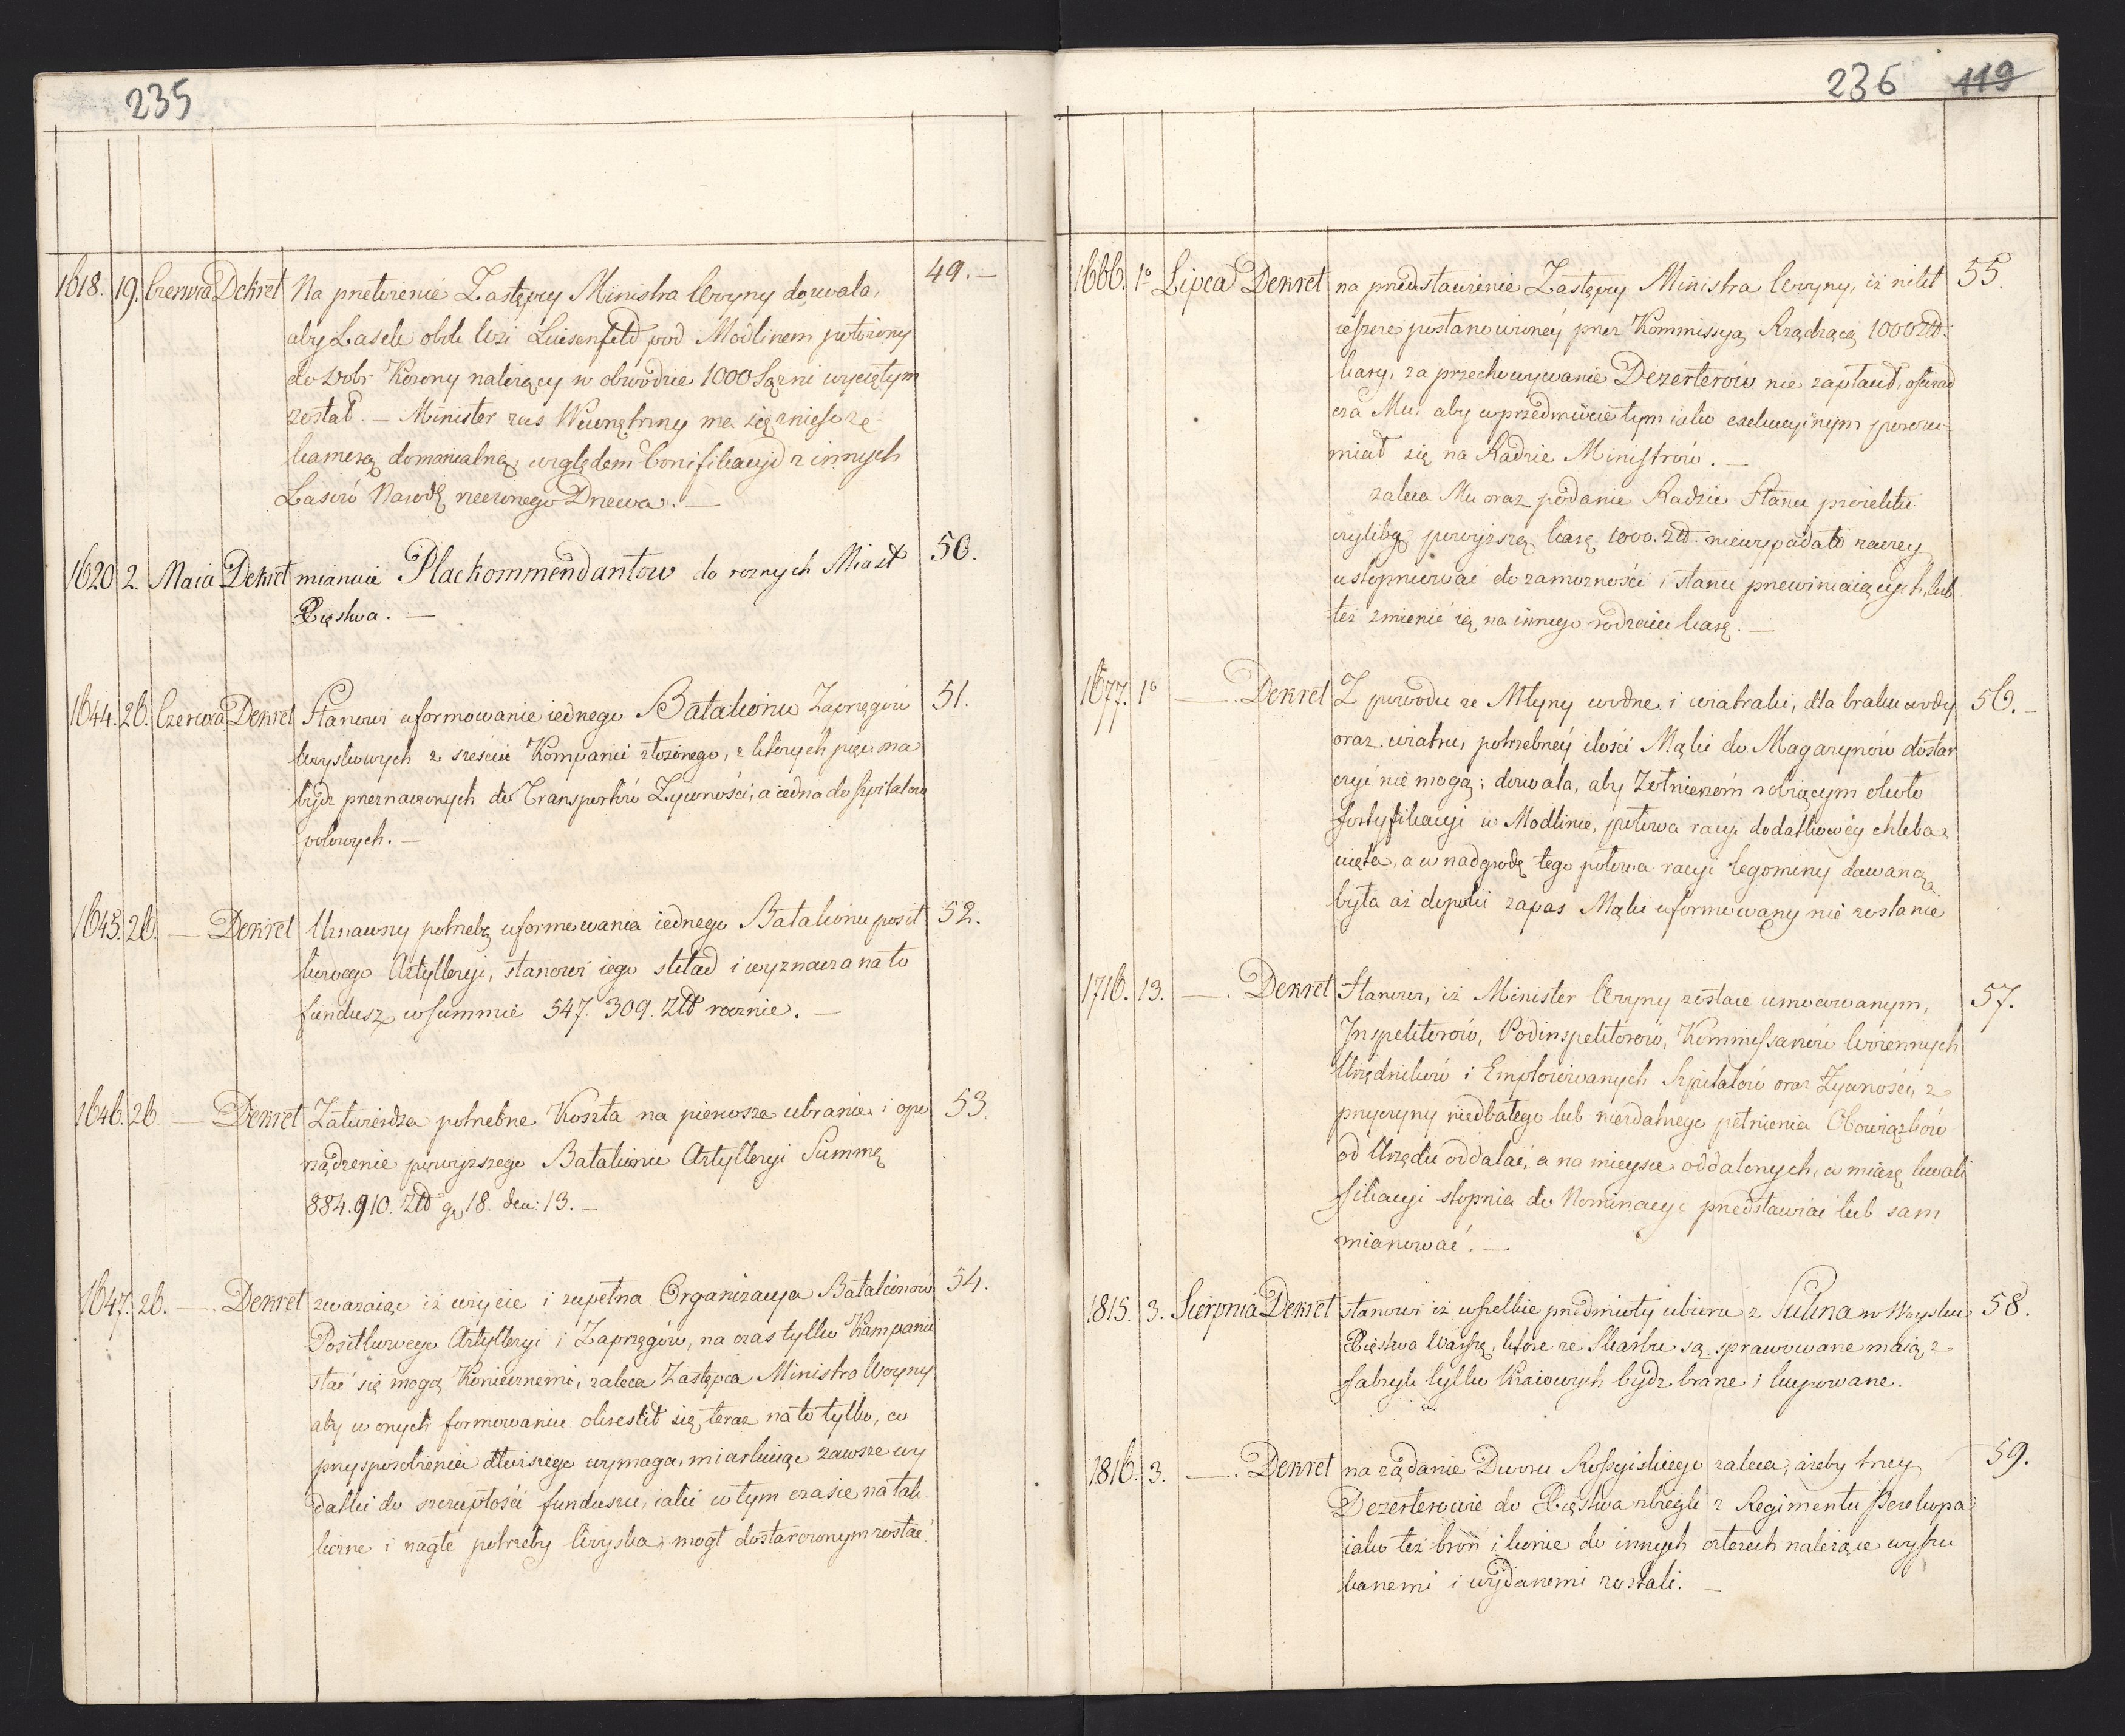 235
1618. 19. Czerwca Dekret Na przełożenie Zastępcy Ministra Woyny dozwala, 49. —
aby Lasek obok Wsi Luisenfeld pod Modlinem położony
do Dobr Korony należący w obwodzie 1000 Sązni wyciętym
został. — Minister zas Wewnętrzny ma się zniesc ze
kamerą domanialną, względem bonifikacyi z innych
Lasów Narodo rzeczonego Drzewa. —
1620 2. Maia Dekret mianuie Plackommendantow do roznych Miast 50.
Xięstwa. —
1644. 26. Czerwca Dekret Stanowi uformowanie iednego Batalionu Zaprzęgów 51.
Woyskowych z sześciu Kompanii złożonego, z których pięc ma
bydz przeznaczonych do Transportów Żywności, a iedna do szpitalow
polowych. —
1645. 26. — Dekret Uznawszy potrzebę uformowania iednego Batalionu posił 52.
kowego Artylleryi, stanowi iego skład i wyznacza na to
fundusz w summie 547. 309. Złł rocznie. —
1646. 26 — Dekret Zatwierdza potrzebne Koszta na pierwsze ubranie i opo 53.
rządzenie powyższego Batalionu Artylleryi Summę
884.910. Złł gr 18. den: 13. —
1647. 26. — Dekret zwazaiąc iż użycie i zupełna Organizacya Batalionow 54.
Posiłkowego Artylleryi i Zaprzęgów, na czas tylko Kampanii
stać się mogą Koniecznemi, zaleca Zastępca Ministra Woyny
aby w onych formowaniu okreslił się teraz na to tylko, co
przysposobienia dłuższego wymaga, miarkuiąc zawsze wy
datki do szczupłości funduszu, iaki w tym czasie na tak
liczne i nagłe potrzeby Woyska, mogł dostarczonym zostać.
236 119
1666. 1º Lipca Dekret na przedstawienie Zastępcy Ministra Woyny, iż nikt 55.
ieszcze postanowioney przez Kommissyą Rządzącą 1000 Złł.
kary, za przechowywanie Dezerterów nie zapłacił, oświad
cza Mu, aby w przedmiocie tym iako exekucyinym porozu-
miał się na Radzie Ministrów. —
zaleca Mu oraz podanie Radzie Stanu proiektu
czyliby powyższą karę 1000. złł. niewypadało raczey
ustopniować do zamozności i stanu przewiniaiących, lub
też zmienić ią na innego rodzaiu karę. —
1677. 1º — Dekret Z powodu ze Młyny wodne i wiatraki, dla braku wody 56. —
oraz wiatru, potrzebnéy ilości Mąki do Magazynów dostar
czyć nie mogą; dozwala, aby Żołnierzom robiącym około
fortyfikacyi w Modlinie, połowa racyi dodatkowéy chleba
uięta, a w nadgrodę tego połowa racyi legominy dawaną
była aż dopoki zapas Mąki uformowany nie zostanie
1716. 13. — . Dekret Stanowi, iż Minister Woyny zostaie umocowanym, 57.
Inspektorów, Podinspektorów, Kommissarzów Woiennych
Urzędników i Emploiowanych Szpitalów oraz Żywności, z
przyczyny niedbałego lub niezdatnego pełnienia Obowiązków
od Urzędu oddalać, a na mieysce oddalonych, w miarę kwali
fikacyi stopnia do Nominacyi przedstawiać lub sam
mianować. —
1815. 3. Sierpnia Dekret stanowi iż wszelkie przedmioty ubioru z Sukna w Woysku 58.
Xięstwa Warszę, które ze Skarbu są sprawowane maią z
fabryk tylko Kraiowych bydz brane i kupowane.
1816. 3. — . Dekret na ządanie Dworu Rossyiskiego zaleca, ażeby trzey 59.
Dezerterowie do Xięstwa zbiegli z Regimentu Perekopa
iako też broń i konie do innych czterech należące wyszu
kanemi i wydanemi zostali. —